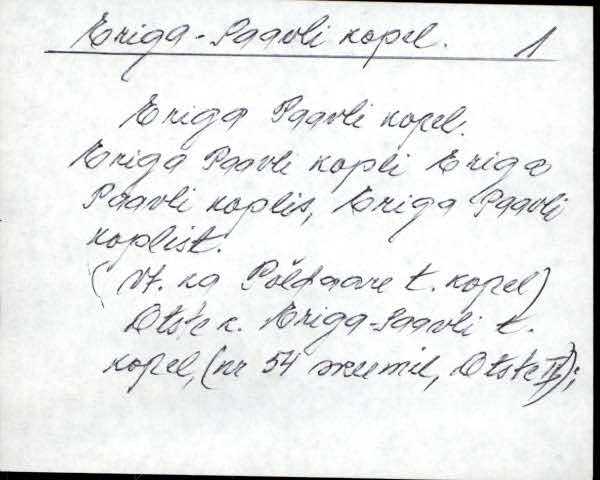 Eriga-Paavli kopel. 1
Eriga Paavli kopel.
Eriga Paavli kopli Eriga
Paavli koplis, Eriga Paavli
koplist.
(Vt. ka Põldaare t. kopel)
Otste k. Eriga-Paavli t.
kopel, (nr 54 skeemil, Otste IV);